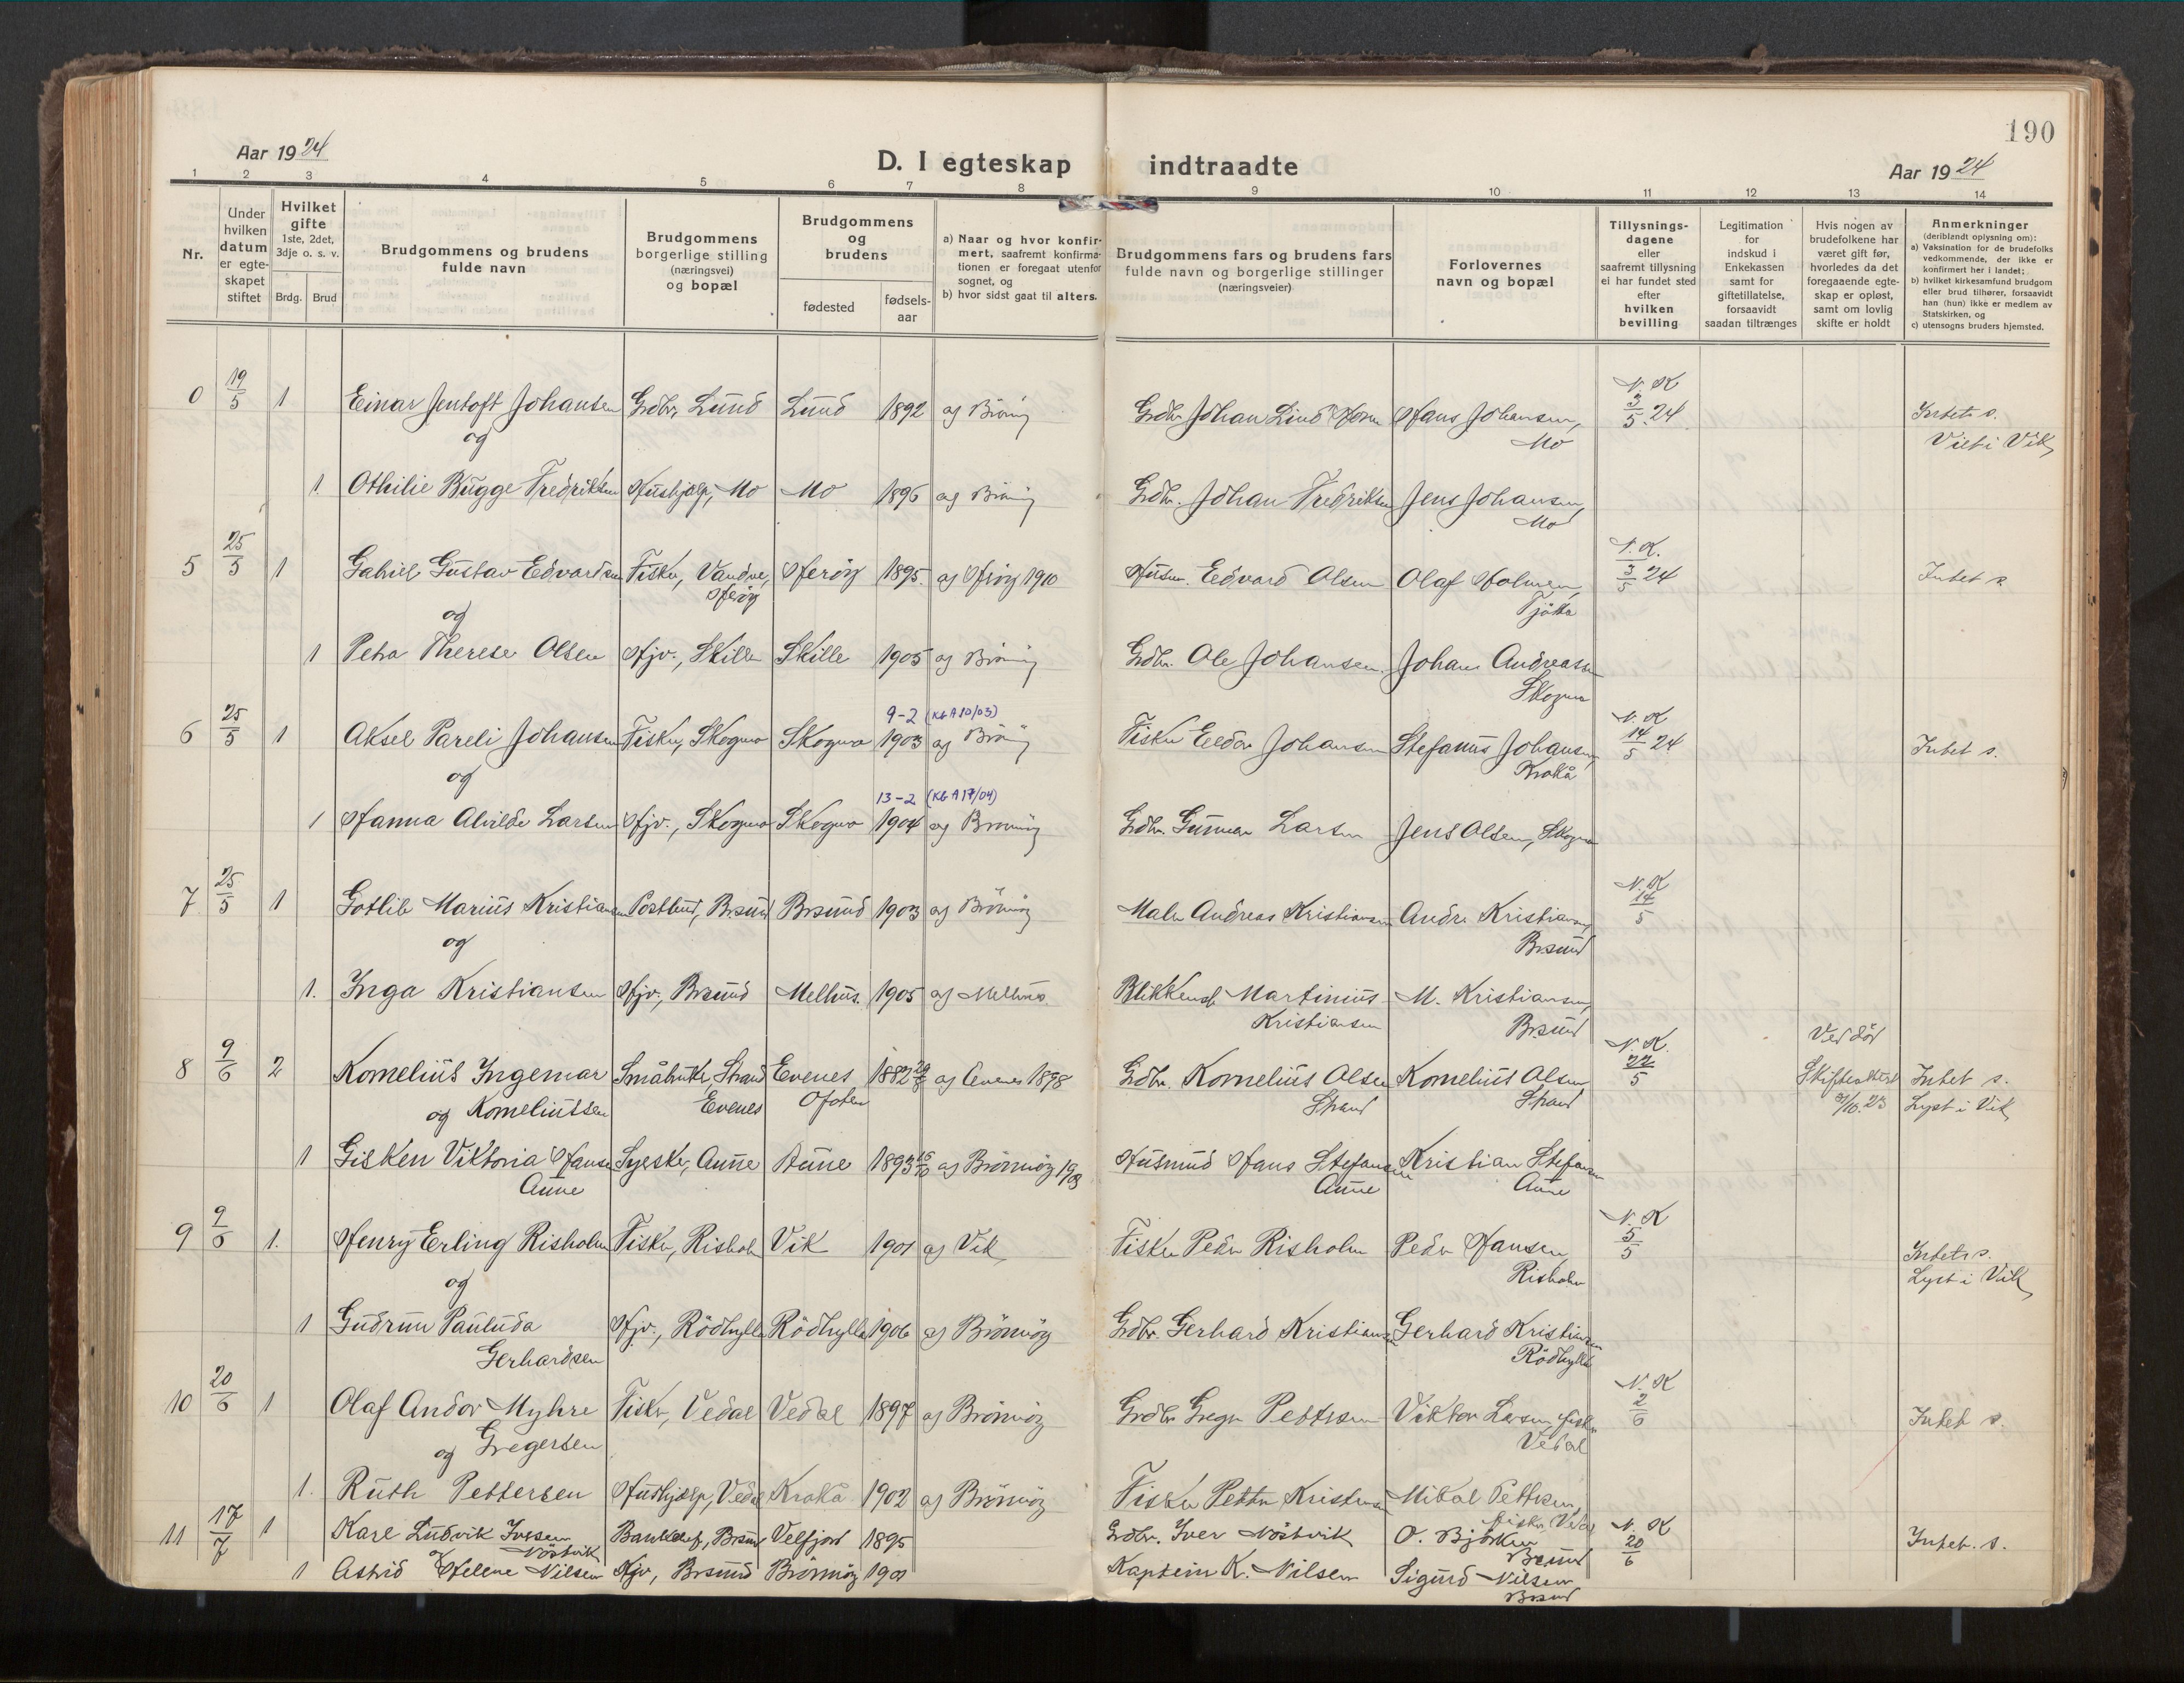 190
Aar 1924
D. I egteskap indtraadte
Aar 1924
1 2 3 4 5 6 7 8 9 10 11 12 13 14
Nr.
Under hvilken datum er egte-skapet stiftet
Hvilket gifte
1ste, 2det, 3dje o. s. v.
Brdg. Brud
Brudgommens og brudens fulde navn
Brudgommens borgerlige stilling (næringsvei) og bopæl
Brudgommens og brudens
fødested
fødsels-aar
a) Naar og hvor konfir-mert, saafremt konfirma-tionen er foregaat utenfor sognet, og
b) hvor sidst gaat til alters.
Brudgommens fars og brudens fars fulde navn og borgerlige stillinger (næringsveier)
Forlovernes navn og bopæl
Tillysnings-dagene eller saafremt tillysning ei har fundet sted efter hvilken bevilling
Legitimation for indskud i Enkekassen samt for giftetillatelse, forsaavidt saadan tiltrænges
Hvis nogen av brudefolkene har været gift før, hvorledes da det foregaaende egte-skap er opløst, samt om lovlig skifte er holdt
Anmerkninger
(deriblandt oplysning om):
a) Vaksination for de brudefolks vedkommende, der ikke er konfirmert her i landet;
b) hvilket kirkesamfund brudgom eller brud tilhører, forsaavidt han (hun) ikke er medlem av Statskirken, og
c) utensogns bruders hjemsted.
0 19/5 1 Einar Jentoft Johansen Grdbr, Lund Lund 1892 og Grdbr. Johan Hans Johansen, Mo N. K 3/5 24 Intet s.
Viet i Vik
og
1. Othilie Bugge Fredriksen Hushjælp, Mo Mo 1896 og Grdbr. Johan Fredriksen Jens Johansen, Mo
5 25/5 1 Gabriel Gustav Edvardsen Fisker, Vandve, Herøy Herøy 1895. og Herøy 1910 Husm. Edvard Olsen Olaf Holmen, Tjøtta N. K. 3/5 24 Intet s.
og
1 Petra Therese Olsen Hjv., Skille Skille 1905 og Grdbr. Ole Johansen Johan Andreassen Skogmo
9-2 (Kb A 10/03)
6 25/5 1 Aksel Pareli Johansen Fisker, Skogmo Skogmo 1903 og Fisker Johansen Stefanus Johansen, Krokå N. K 14/5 24 Intet s.
og
13-2 (Kb A 17/04)
1 Hanna Alvilde Larsen Hjv., Skogmo Skogmo 1904 og Brønnøy Grdbr. Gunnar Larsen Jens Olsen, Skogmo
7 25/5 1 Gotlib Marius Kristiansen Postbud, Brsund Brsund 1903 og Brönnöy Maler Andreas Kristiansen Andr. Kristiansen, Brsund N. K 14/5
og
1. Inga Kristiansen Hjv, Brsund Melhus. 1905 og Melhus Blikkensl. Martinius Kristiansen M. Kristiansen, Brsund
8 9/6 2 Kornelius Ingemar Korneliussen Småbruker, Strand Evenes Evenes Ofoten 1882 og Evenes 1898 Grdbr. Kornelius Olsen Strand Kornelius Olsen Strand N. K. 22/5 Ved död Skifteattest Intet s.
Lyst i Vik
og
1 Gisken Viktoria Hansen Aune Syerske, Aune Aune 1893 og Brönnöy Husmand Hans Stefansen Aune Kristian Stefansen Aune
9 9/6 1. Henry Erling Risholm Fisker, Risholm Vik 1901 og Vik Fisker Peder Risholm Peder Hansen, Risholm N. K 5/5 Intet s.
Lyst i Vik
og
1 Gudrun Pauluda Gerhardsen Hjv., Rödhylla Rödhylla 1906 og Brönnöy Grdbr. Gerhard Kristiansen Gerhard Kristiansen Rödhylla
10 20/6 1 Olaf Andor Myhre Gregersen Fisker, Vedal Vedal 1897 og Brönnöy Grdbr Greger Pettersen Viktor Larsen, fisker Vedal N. K 2/6 Intet s.
og
1. Ruth Pettersen Hushjælp, Vedal Krokå 1902 og Brönnöy Fisker Petter Kristensen Mikal Pettersen, fisker, Vedal
11 17/7 1 Karl Ludvik Iversen Nöstvik Bankchef, Brsund Velfjord 1895 Grdbr. Iver Nöstvik O. Björken Brsund N. K 20/6 Intet. s.
og
1 Astrid Helene Nilsen Hjv, Brsund Brönnöy 1901 Kaptein K. Nilsen Sigurd Nilsen Brsund